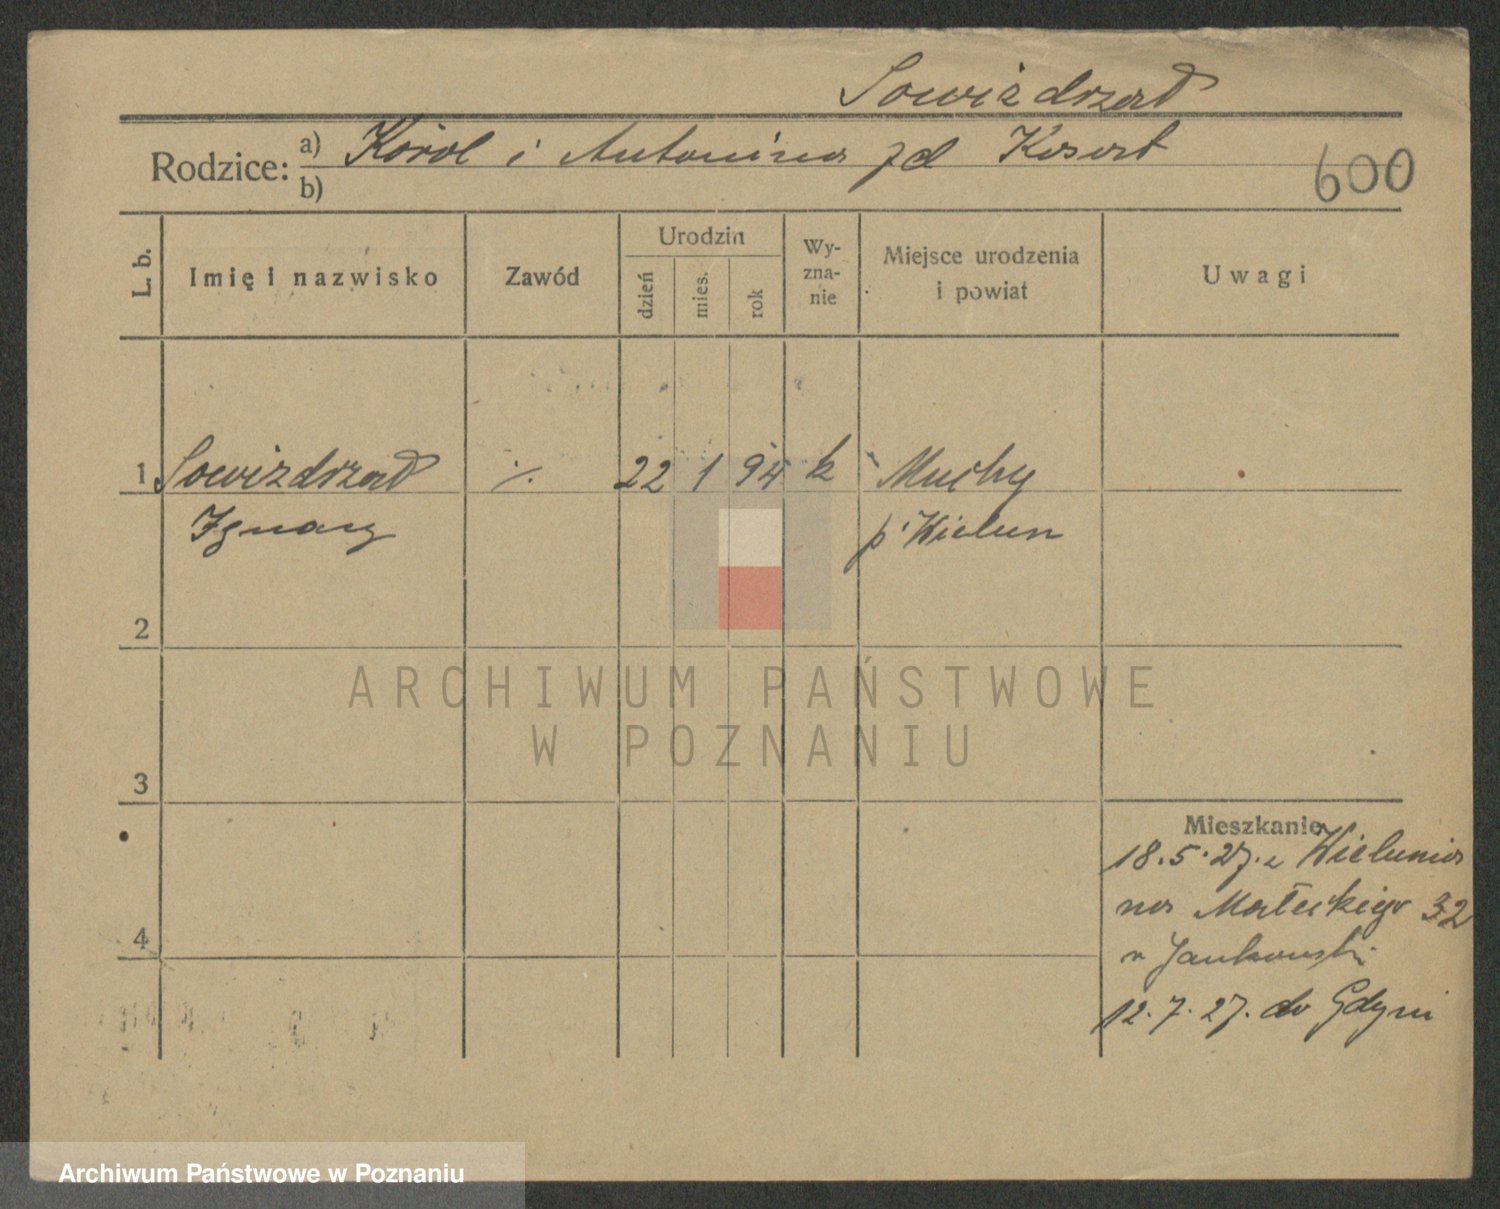 Sowizdrzał
Rodzice: a) Karol i Antonina zd Kosart
b)
600
L. b. Imię i nazwisko Zawód Urodzin dzień mies. rok Wyznanie Miejsce urodzenia i powiat Uwagi
1 Sowizdrzał ·/. 22 1 94 k Muchy
Ignacy p. Wielun
2
3
4
Mieszkanie
18.5.27. z Wielunia
na Małeckiego 32
u Jankowski
12.7.27. do Gdyni
ARCHIWUM PAŃSTWOWE
W POZNANIU
Archiwum Państwowe w Poznaniu